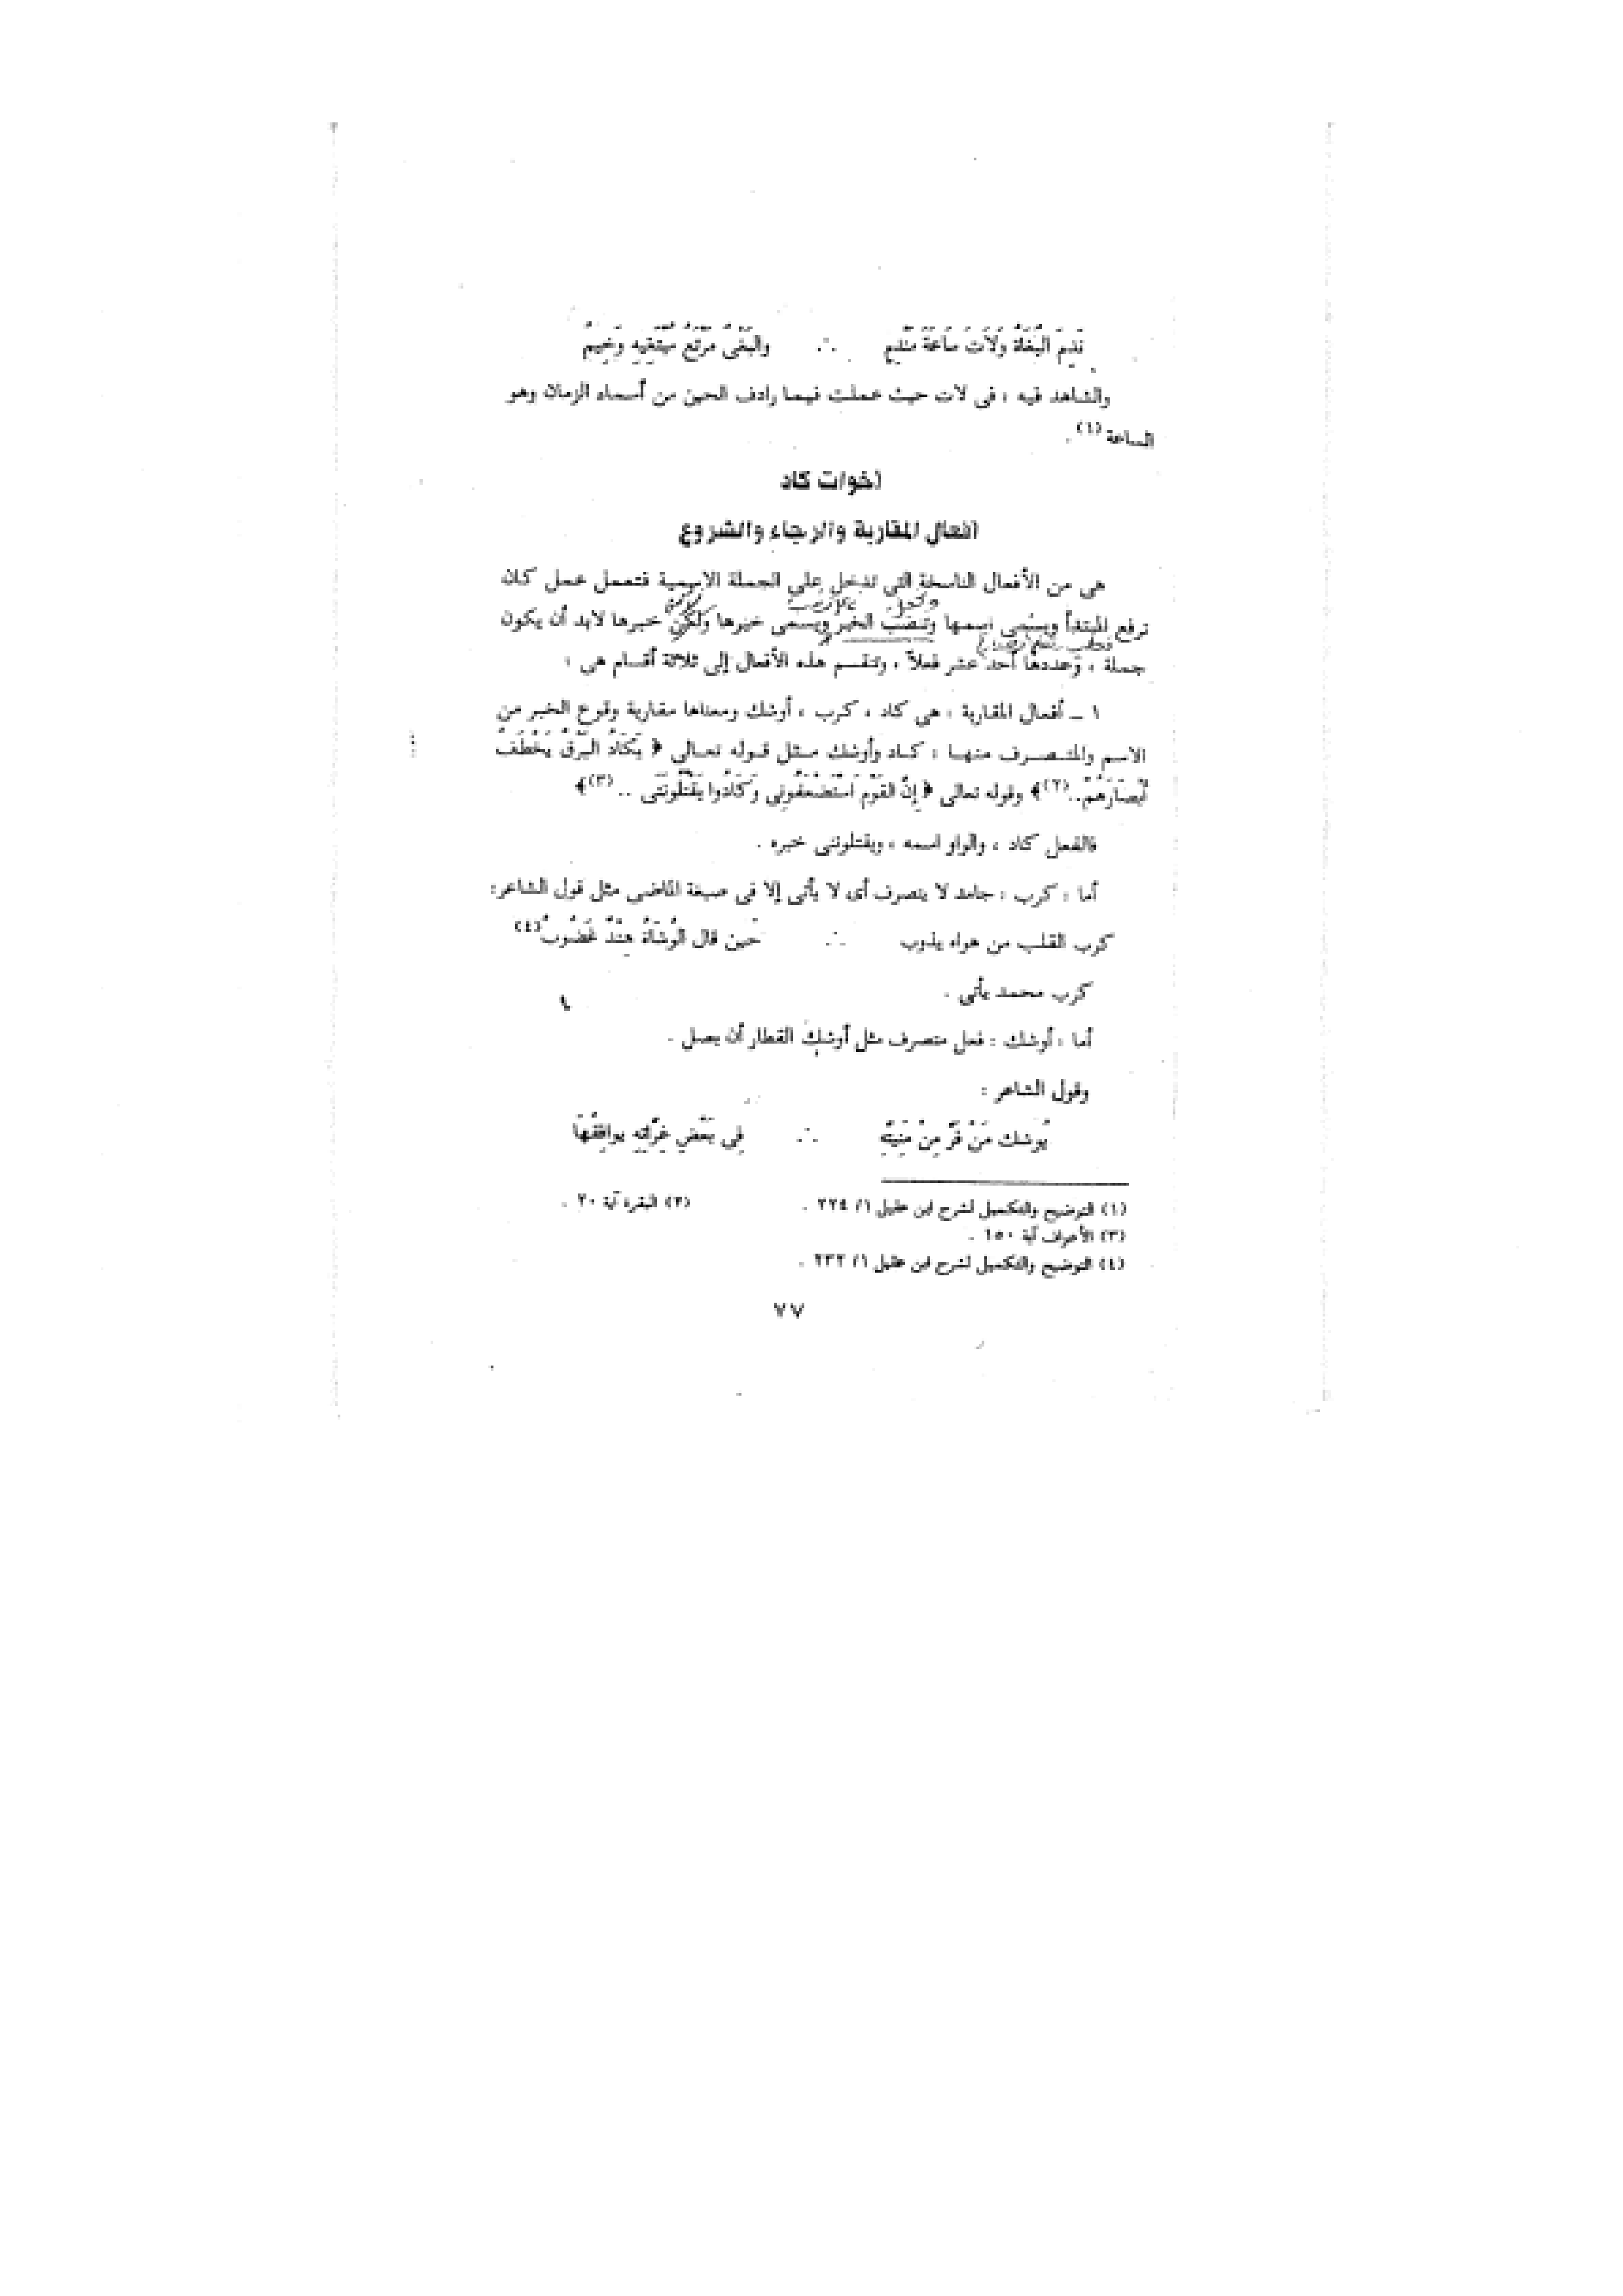 نَدِمَ البُغَاةُ وَلَاتَ سَاعَةَ مَنْدَمِ ∴ والبَغْىُ مَرْتَعُ مُبْتَغِيهِ وَخِيمُ
والشاهد فيه : فى لات حيث عملت فيما رادف الحين من أسماء الزمان وهو
الساعة (١) .
أخوات كاد
أفعال المقاربة والرجاء والشروع
هى من الأفعال الناسخة التي تدخل على الجملة الاسمية فتعمل عمل كان
ترفع المبتدأ ويسمى اسمها وتنصب الخبر ويسمى خبرها ولكن خبرها لابد أن يكون
جملة ، وعددها أحد عشر فعلاً ، وتنقسم هذه الأفعال إلى ثلاثة أقسام هى :
١ ــ أفعال المقاربة : هى كاد ، كرب ، أوشك ومعناها مقاربة وقوع الخبر من
الاسم والمتصرف منها : كاد وأوشك مثل قوله تعالى ﴿ يَكَادُ البَرْقُ يَخْطَفُ
أَبْصَارَهُمْ..(٢)﴾ وقوله تعالى ﴿إِنَّ القَوْمَ اسْتَضْعَفُونِى وَكَادُوا يَقْتُلُونَنَى ..(٣)﴾
فالفعل كاد ، والواو اسمه ، ويقتلوننى خبره .
أما : كرب : جامد لا يتصرف أى لا يأتى إلا فى صيغة الماضى مثل قول الشاعر:
كرب القلب من هواه يذوب ∴ حين قال الوُشَاةُ هِنْدٌ غَضُوبُ(٤)
كرب محمد يأتى .
أما : أوشك : فعل متصرف مثل أوشك القطار أن يصل .
وقول الشاعر :
يُوشك مَنْ فَرَّ مِنْ مَنِيَّتِهِ ∴ فِى بَعْضِ غِرَّاتِهِ يوافِقُهَا
(١) التوضيح والتكميل لشرح ابن عقيل ١/ ٢٢٤ . (٢) البقرة آية ٢٠ .
(٣) الأعراف آية ١٥٠ .
(٤) التوضيح والتكميل لشرح ابن عقيل ١/ ٢٣٢ .
٧٧